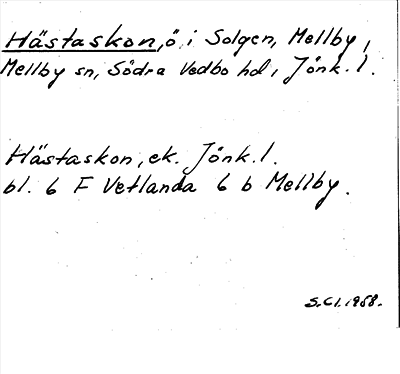 Hästaskon, ö i Solgen, Mellby,
Mellby sn, Södra Vedbo hd, Jönk.l.
Hästaskon, ek. Jönk.l.
bl. 6 F Vetlanda 6 b Mellby.
S.Cl.1958.